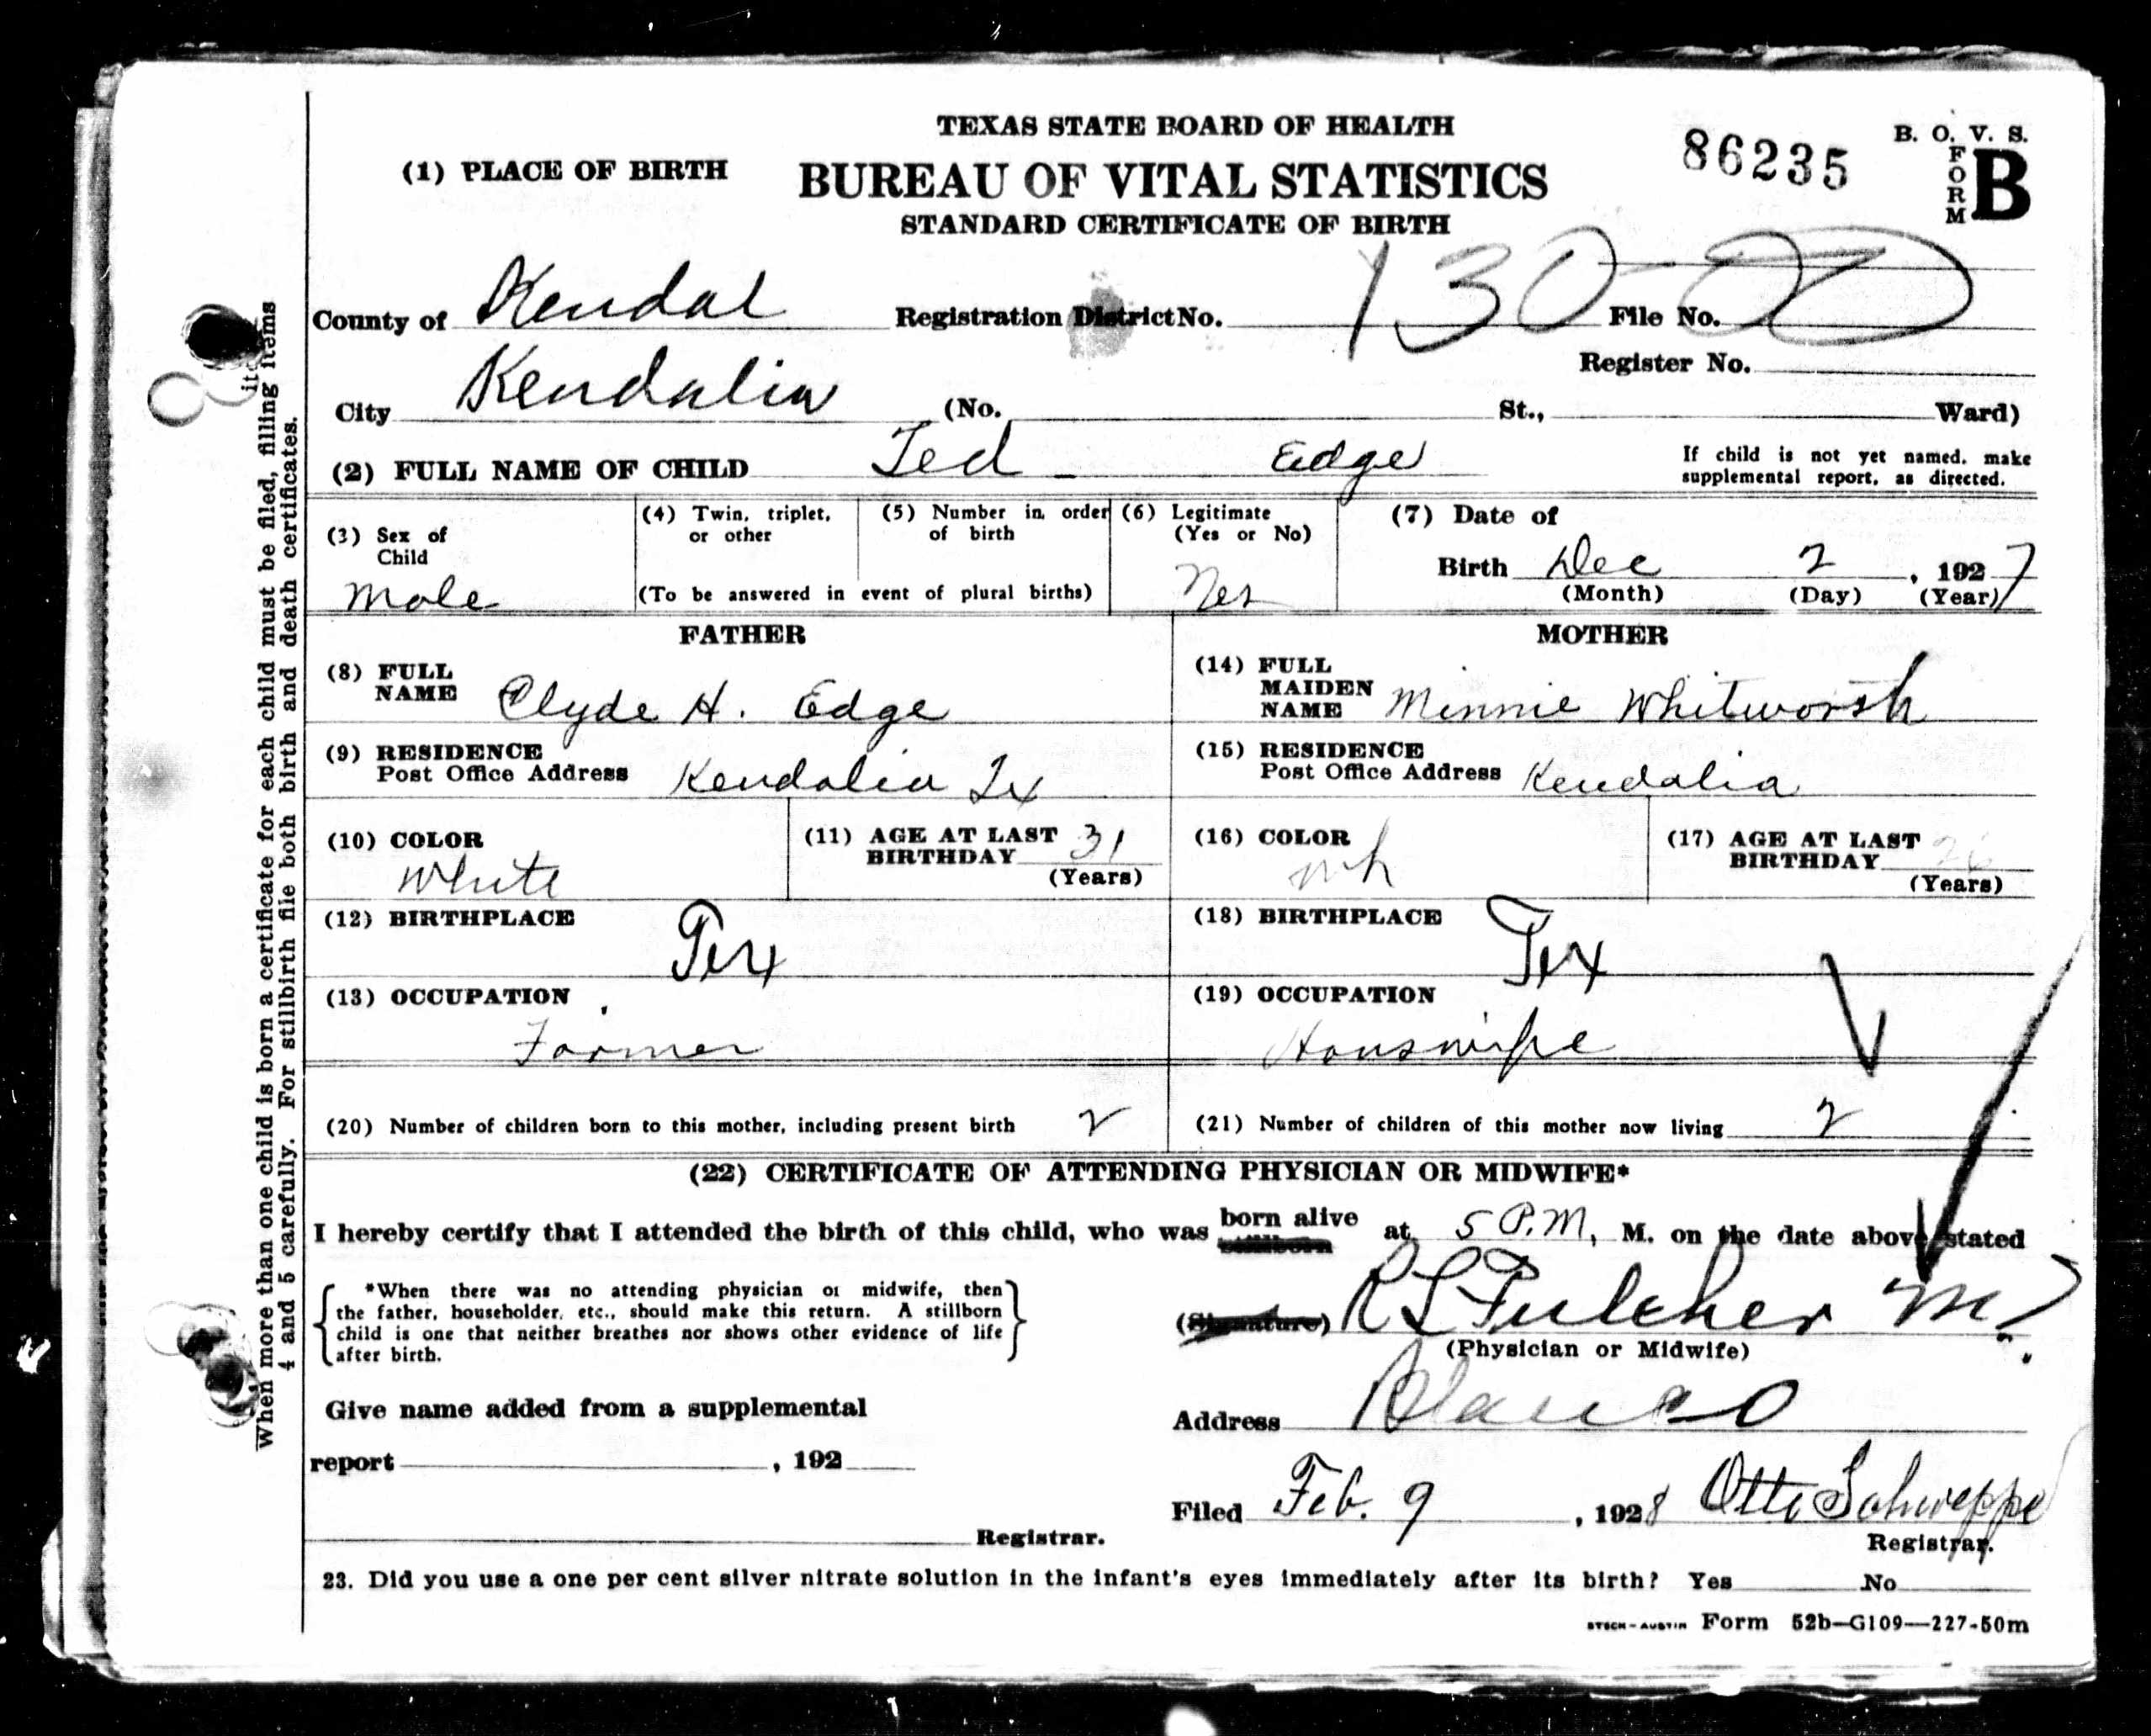 TEXAS STATE BOARD OF HEALTH
86235
B. O. V. S.
FORM B
(1) PLACE OF BIRTH
BUREAU OF VITAL STATISTICS
STANDARD CERTIFICATE OF BIRTH
County of Kendal Registration District No. 130-00 File No.
Register No.
City Kendalia (No. St., Ward)
(2) FULL NAME OF CHILD Ted Edge
If child is not yet named, make
supplemental report, as directed.
(3) Sex of
Child
Male
(4) Twin, triplet,
or other
(5) Number in order
of birth
(To be answered in event of plural births)
(6) Legitimate
(Yes or No)
Yes
(7) Date of
Birth Dec 2, 1927
(Month) (Day) (Year)
FATHER
(8) FULL
NAME Clyde H. Edge
(9) RESIDENCE
Post Office Address Kendalia Tx
(10) COLOR
White
(11) AGE AT LAST
BIRTHDAY 31
(Years)
(12) BIRTHPLACE Tex
(13) OCCUPATION
Farmer
MOTHER
(14) FULL
MAIDEN
NAME Minnie Whitworth
(15) RESIDENCE
Post Office Address Kendalia
(16) COLOR
Wh
(17) AGE AT LAST
BIRTHDAY 26
(Years)
(18) BIRTHPLACE Tex
(19) OCCUPATION
Houswife
(20) Number of children born to this mother, including present birth 2
(21) Number of children of this mother now living 2
(22) CERTIFICATE OF ATTENDING PHYSICIAN OR MIDWIFE*
I hereby certify that I attended the birth of this child, who was born alive at 5 P.M, M. on the date above stated
stillborn
*When there was no attending physician or midwife, then
the father, householder, etc., should make this return. A stillborn
child is one that neither breathes nor shows other evidence of life
after birth.
(Signature) R L Fulcher M.D.
(Physician or Midwife)
Give name added from a supplemental
report , 192
Registrar.
Address Blanco
Filed Feb. 9, 1928 Otto Schweppe
Registrar.
23. Did you use a one per cent silver nitrate solution in the infant's eyes immediately after its birth? Yes No
STECK-AUSTIN Form 52b—G109—227-50m
When more than one child is born a certificate for each child must be filed, filling items
4 and 5 carefully. For stillbirth file both birth and death certificates.